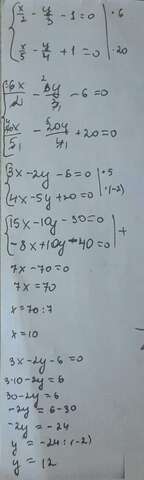 { x/2 - y/3 - 1 = 0 | · 6
{ x/5 - y/4 + 1 = 0 | · 20
{ 6x/2 - 6y/3 - 6 = 0
{ 20x/5 - 20y/4 + 20 = 0
{ 3x - 2y - 6 = 0 | · 5
{ 4x - 5y + 20 = 0 | · (-2)
{ 15x - 10y - 30 = 0 | +
{ -8x + 10y - 40 = 0
7x - 70 = 0
7x = 70
x = 70 : 7
x = 10
3x - 2y - 6 = 0
3·10 - 2y = 6
30 - 2y = 6
-2y = 6 - 30
-2y = -24
y = -24 : (-2)
y = 12